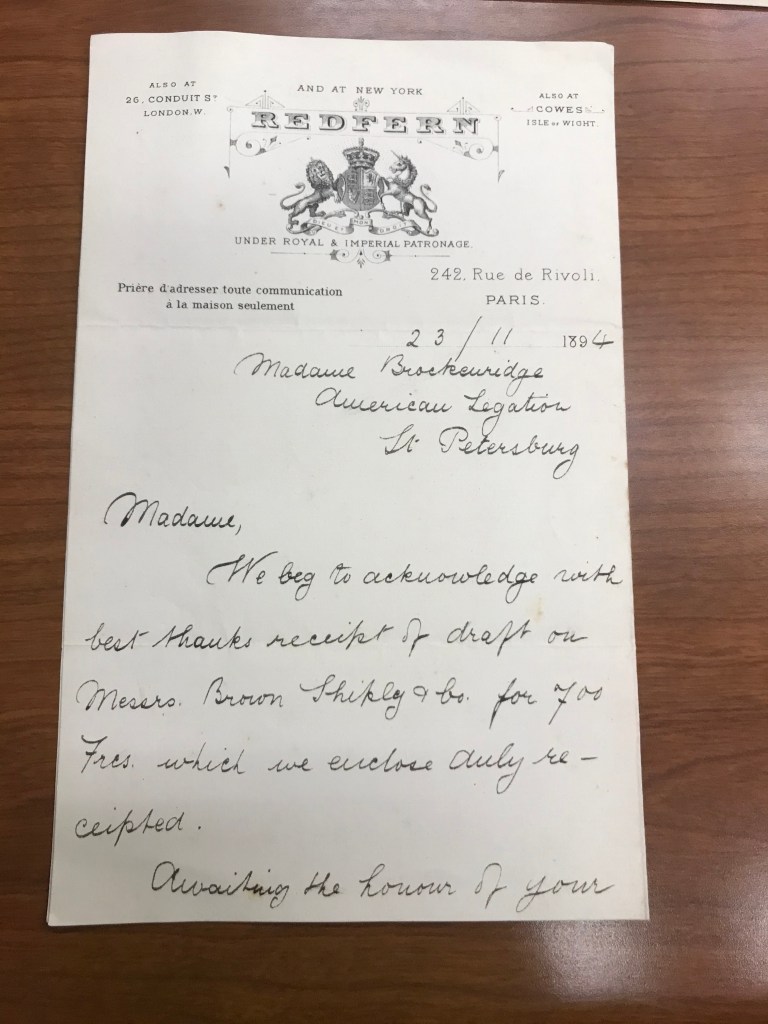 ALSO AT
26, CONDUIT ST
LONDON. W.
AND AT NEW YORK
ALSO AT
COWES
ISLE OF WIGHT.
REDFERN
DIEU ET MON DROIT
UNDER ROYAL & IMPERIAL PATRONAGE.
242, Rue de Rivoli.
PARIS.
Prière d'adresser toute communication
à la maison seulement
23/11 1894
Madame Brockenridge
American Legation
St Petersburg
Madame,
We beg to acknowledge with
best thanks receipt of draft on
Messrs. Brown Shipley & Co. for 700
Frcs. which we enclose duly re-
ceipted.
Awaiting the honour of your